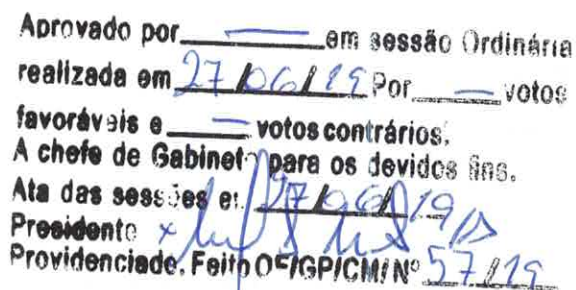 Aprovado por — em sessão Ordinária
realizada em 27/06/19 Por — votos
favoráveis e — votos contrários.
A chefe de Gabinete para os devidos fins.
Ata das sessões em 27/06/19
Presidente
Providenciado. Feito OF/GP/CMI Nº 57/19